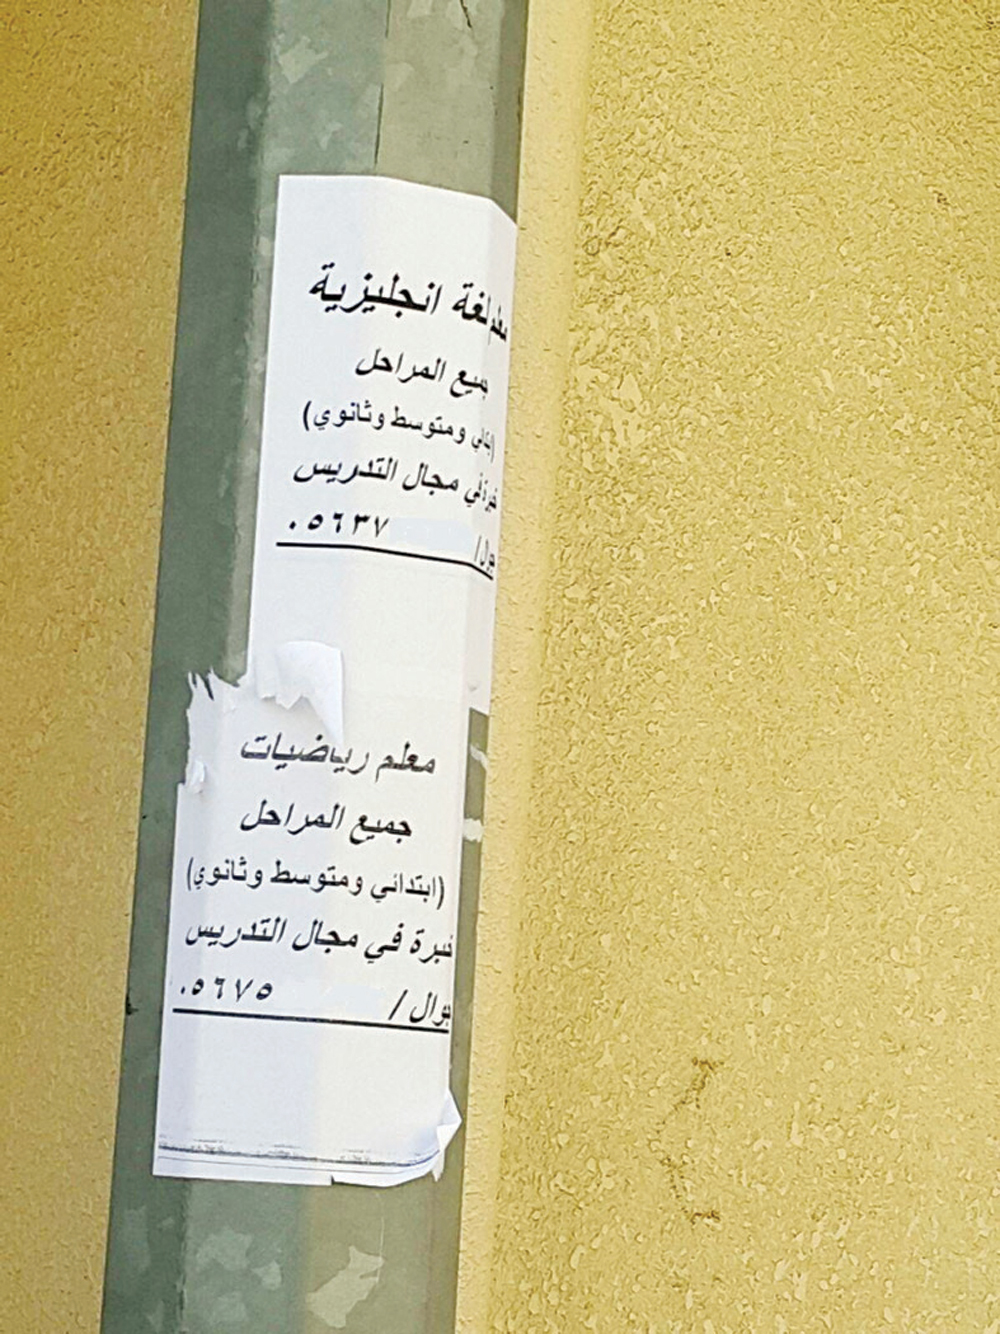 معلم لغة انجليزية
جميع المراحل
(ابتدائي ومتوسط وثانوي)
خبرة في مجال التدريس
جوال / ٠٥٦٣٧
معلم رياضيات
جميع المراحل
(ابتدائي ومتوسط وثانوي)
خبرة في مجال التدريس
جوال / ٠٥٦٧٥